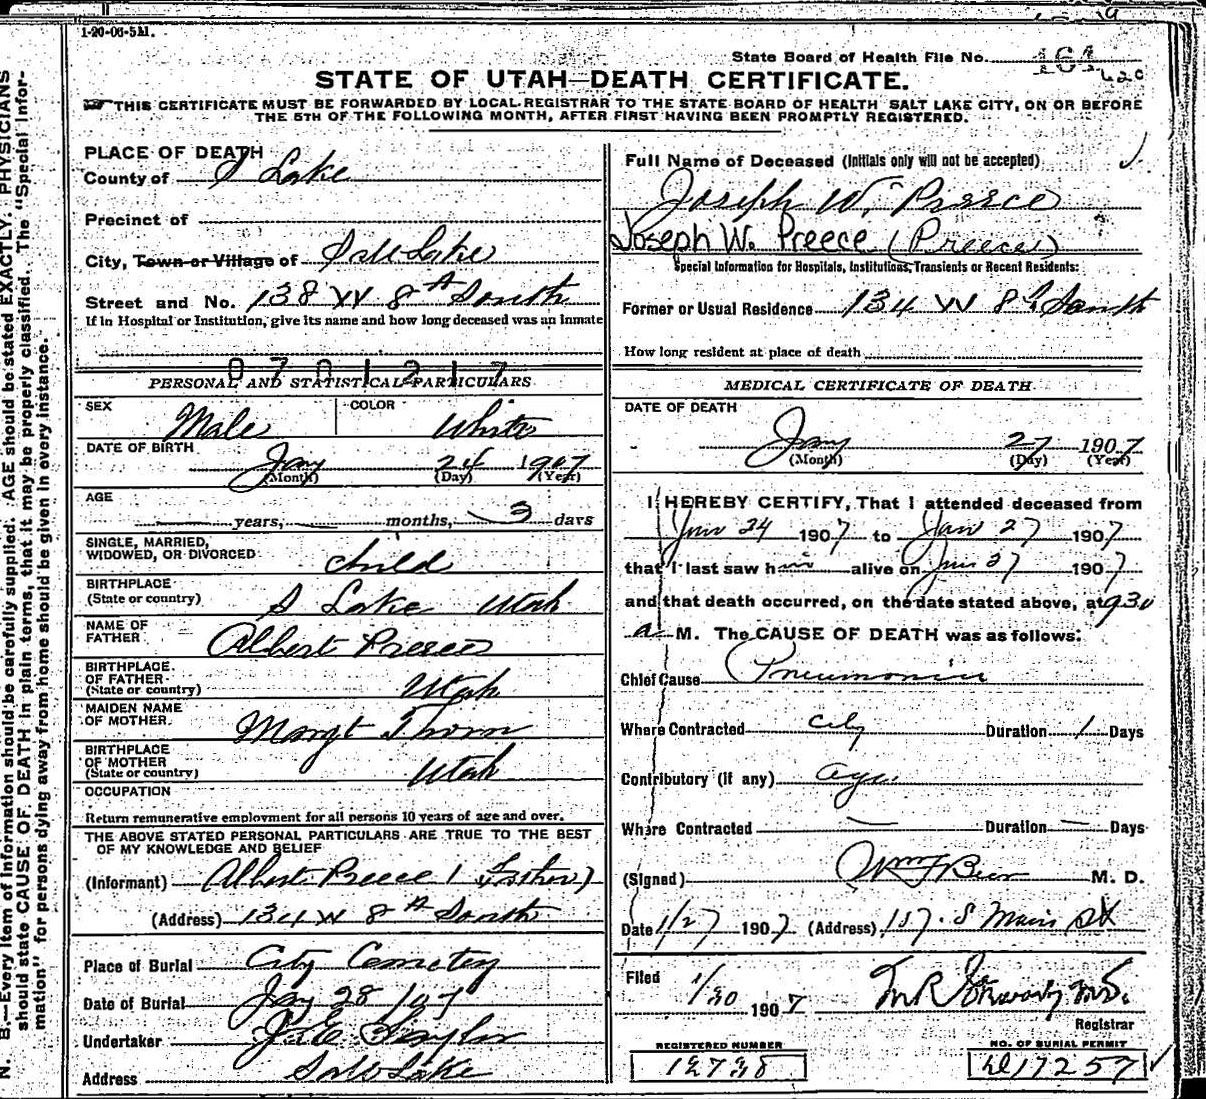 1-20-06-5M.
State Board of Health File No. 161
620
STATE OF UTAH—DEATH CERTIFICATE.
THIS CERTIFICATE MUST BE FORWARDED BY LOCAL REGISTRAR TO THE STATE BOARD OF HEALTH SALT LAKE CITY, ON OR BEFORE
THE 5TH OF THE FOLLOWING MONTH, AFTER FIRST HAVING BEEN PROMPTLY REGISTERED.
PLACE OF DEATH
County of S Lake
Precinct of
City, Town or Village of Salt Lake
Street and No. 138 W 8th South
If in Hospital or Institution, give its name and how long deceased was an inmate
0701217
Full Name of Deceased (Initials only will not be accepted)
Joseph W. Preece
Joseph W. Preece (Preece)
Special Information for Hospitals, Institutions, Transients or Recent Residents:
Former or Usual Residence 134 W 8th South
How long resident at place of death
PERSONAL AND STATISTICAL PARTICULARS
SEX Male COLOR White
DATE OF BIRTH
Jany 24 1907
(Month) (Day) (Year)
AGE
— years, — months, 3 days
SINGLE, MARRIED,
WIDOWED, OR DIVORCED child
BIRTHPLACE
(State or country) S Lake Utah
NAME OF
FATHER Albert Preece
BIRTHPLACE
OF FATHER
(State or country) Utah
MAIDEN NAME
OF MOTHER Margt Thorn
BIRTHPLACE
OF MOTHER
(State or country) Utah
OCCUPATION
Return remunerative employment for all persons 10 years of age and over.
THE ABOVE STATED PERSONAL PARTICULARS ARE TRUE TO THE BEST
OF MY KNOWLEDGE AND BELIEF
(Informant) Albert Preece (Father)
(Address) 134 W 8th South
Place of Burial City Cemetery
Date of Burial Jany 28 / 07
Undertaker
Address Salt Lake
MEDICAL CERTIFICATE OF DEATH
DATE OF DEATH
Jany 27 1907
(Month) (Day) (Year)
I HEREBY CERTIFY, That I attended deceased from
Jan 24 1907 to Jan 27 1907
that I last saw him alive on Jan 27 1907
and that death occurred, on the date stated above, at 930
a M. The CAUSE OF DEATH was as follows:
Chief Cause Pneumonia
Where Contracted city Duration 1 Days
Contributory (if any) age
Where Contracted — Duration — Days
(Signed) Wm F Beer M. D.
Date 1/27 1907 (Address) 157 S Main St
Filed 1/30 1907
Registrar
REGISTERED NUMBER
12738
NO. OF BURIAL PERMIT
17257
N. B.—Every item of information should be carefully supplied. AGE should be stated EXACTLY. PHYSICIANS
should state CAUSE OF DEATH in plain terms, that it may be properly classified. The "Special Infor-
mation" for persons dying away from home should be given in every instance.